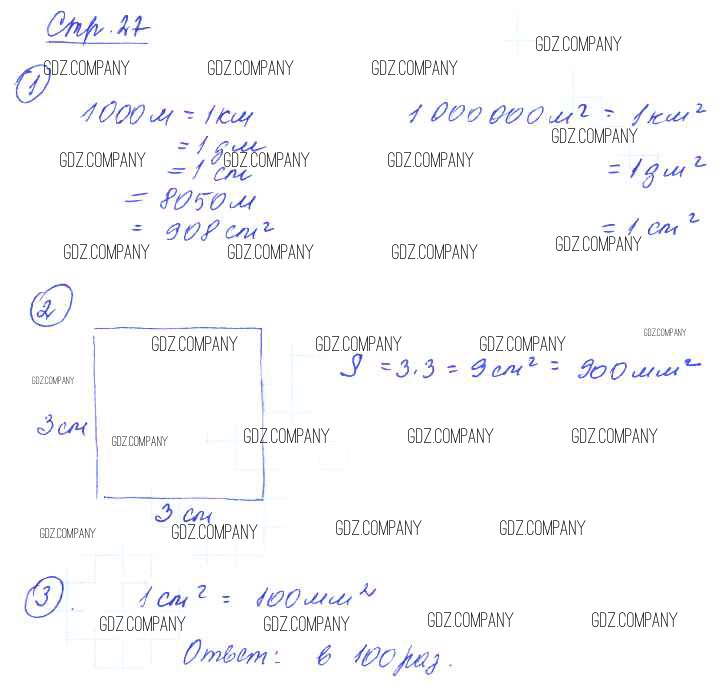 Стр. 27
GDZ.COMPANY
GDZ.COMPANY GDZ.COMPANY GDZ.COMPANY
1
1000 м = 1 км 1 000 000 м² = 1 км²
GDZ.COMPANY
= 1 дм
GDZ.COMPANY GDZ.COMPANY GDZ.COMPANY
= 1 см = 1 дм²
= 8050 м
= 908 см² = 1 см²
GDZ.COMPANY
GDZ.COMPANY GDZ.COMPANY GDZ.COMPANY
2
GDZ.COMPANY
GDZ.COMPANY GDZ.COMPANY GDZ.COMPANY
S = 3 . 3 = 9 см² = 900 мм²
GDZ.COMPANY
3 см
GDZ.COMPANY GDZ.COMPANY GDZ.COMPANY GDZ.COMPANY
3 см
GDZ.COMPANY GDZ.COMPANY GDZ.COMPANY GDZ.COMPANY
3 . 1 см² = 100 мм²
GDZ.COMPANY GDZ.COMPANY GDZ.COMPANY GDZ.COMPANY
Ответ: в 100 раз.